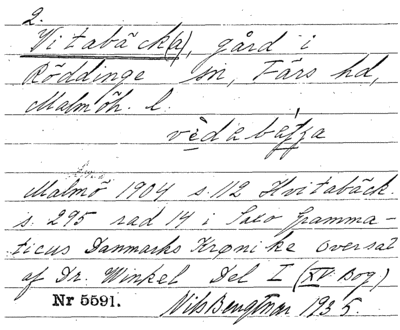 2.
Vitabäck(a), gård i
Röddinge sn, Färs hd,
Malmöh. l.
vèdabáʒʒa
Malmö 1904 s. 112 Hvitabäck.
s. 295 rad 14 i Saxo Gramma-
ticus Danmarks Krønike oversat
af Dr. Winkel Del I (XV. Bog)
Nr 5591. Nils Bengtsson 1935.